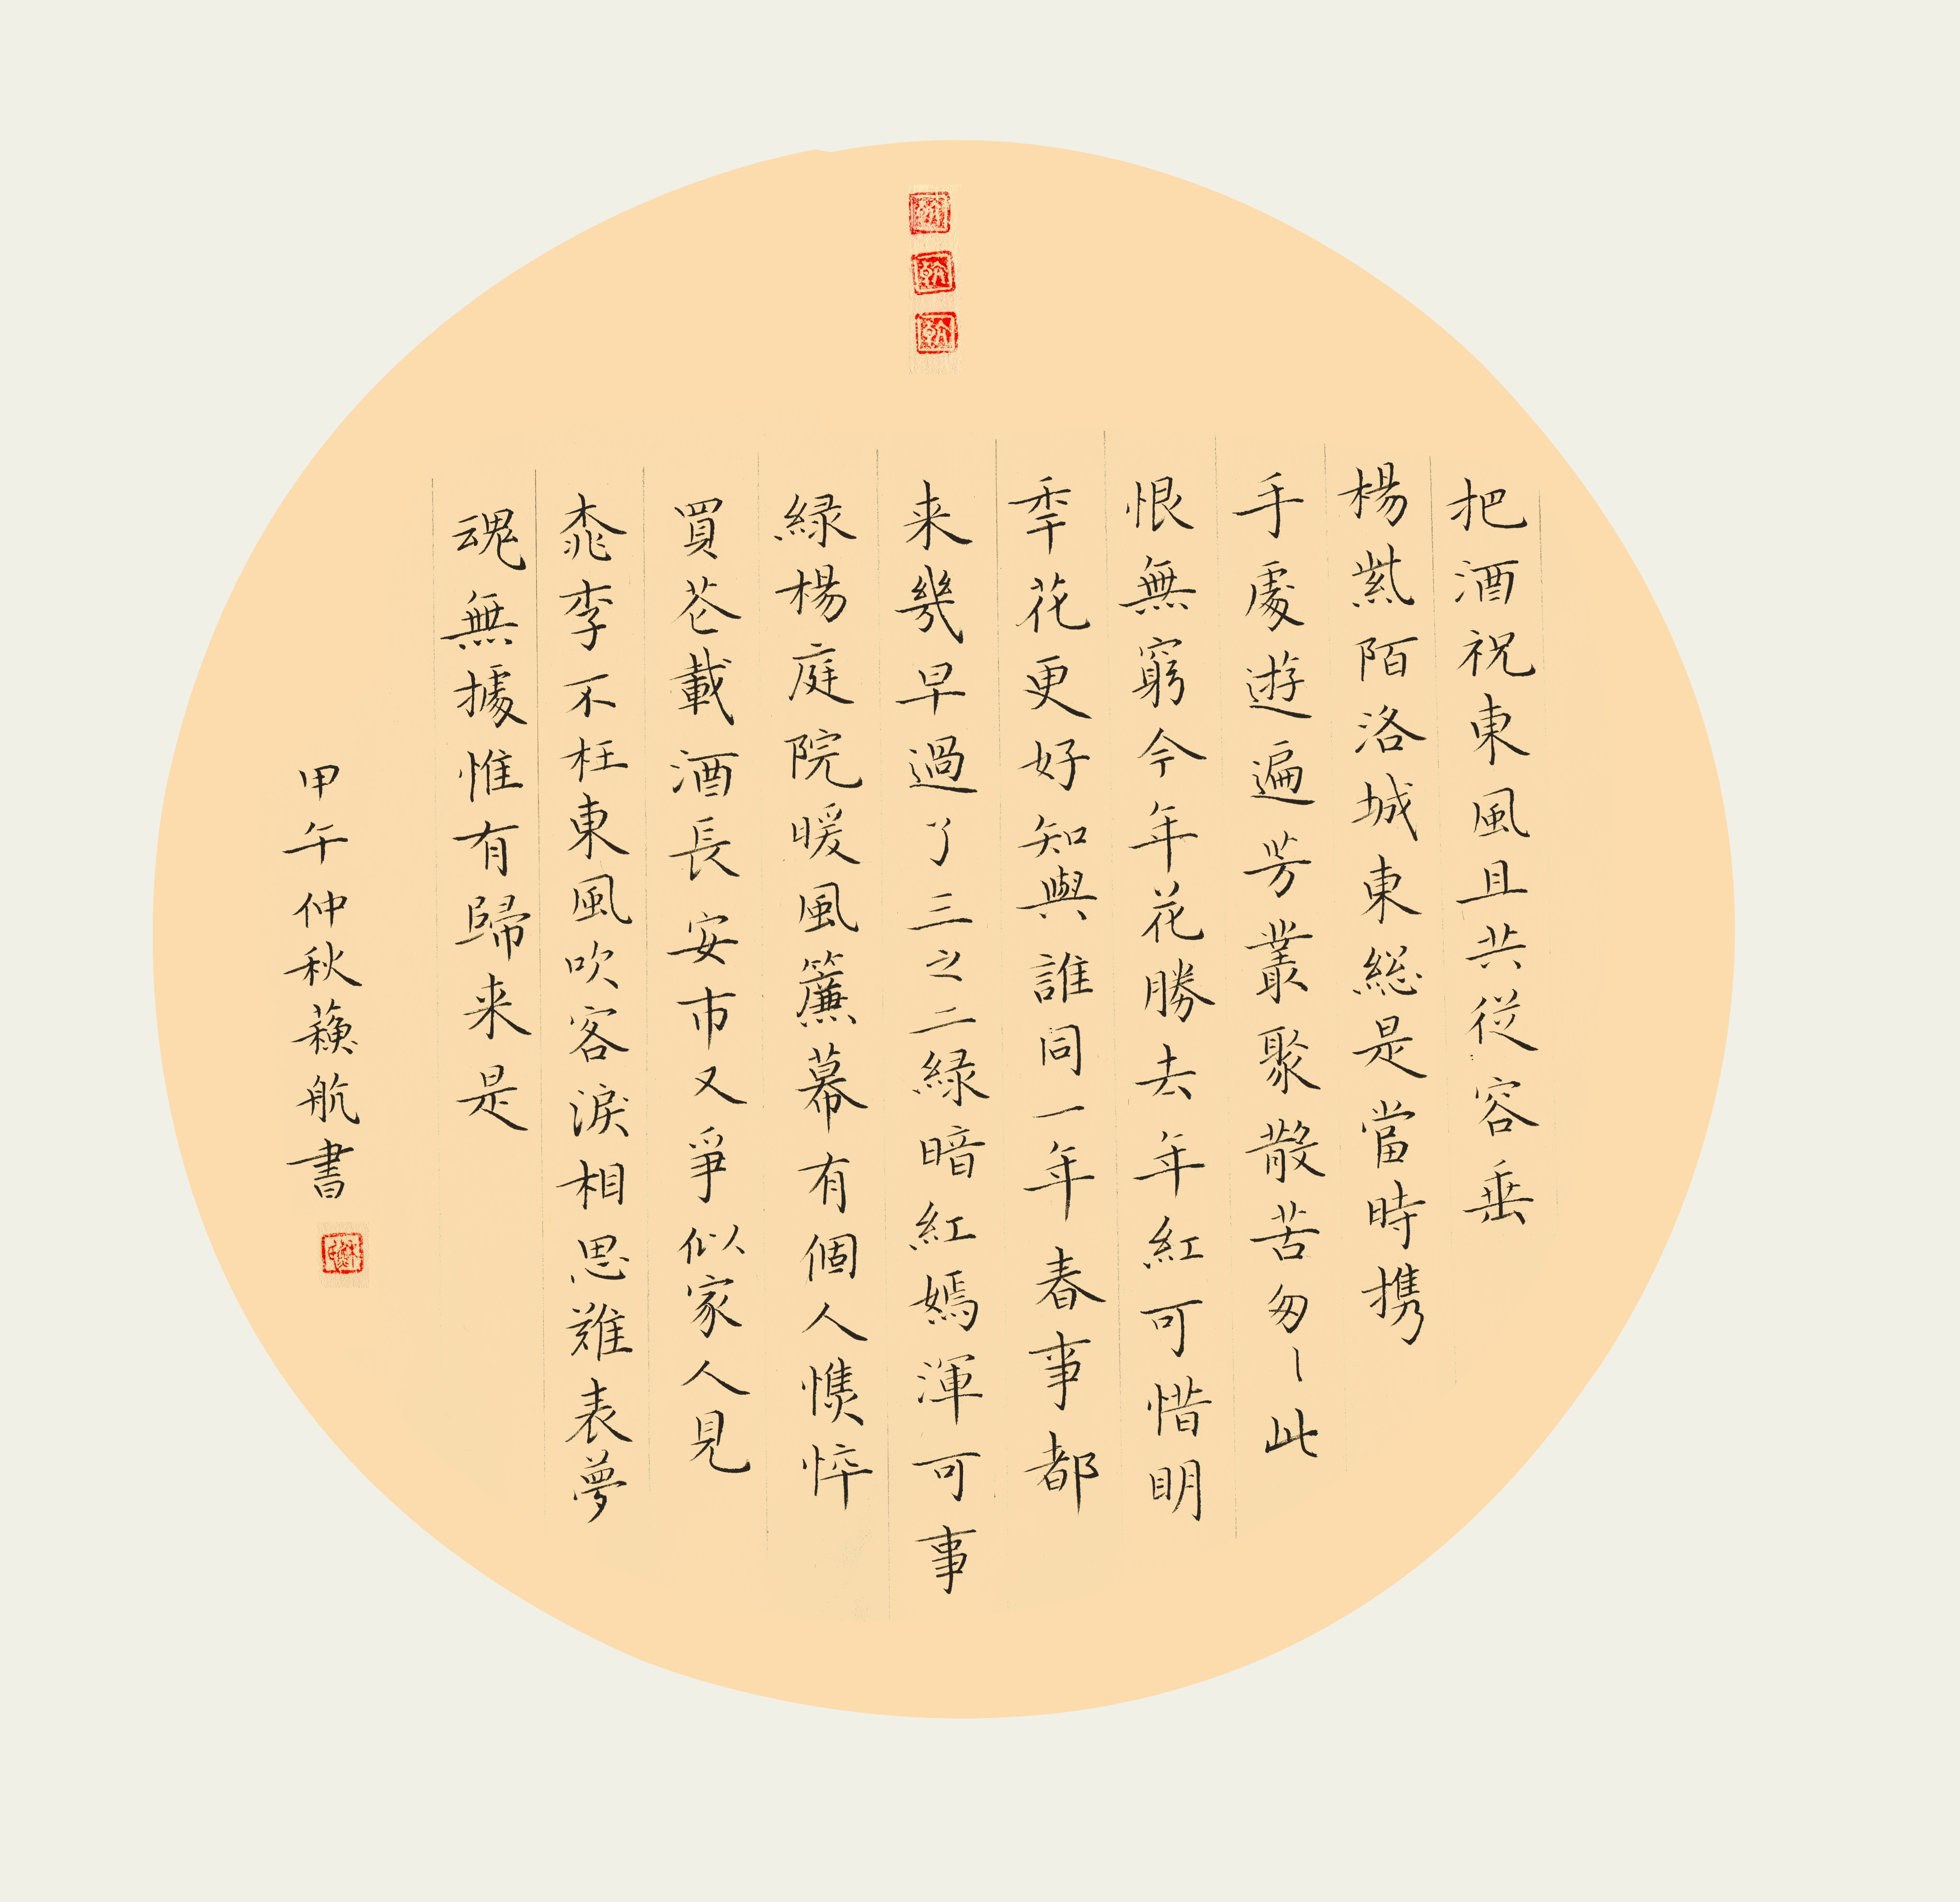 把酒祝東風且共從容垂
楊紫陌洛城東総是當時携
手處遊遍芳叢聚散苦匆〻此
恨無窮今年花勝去年紅可惜明
年花更好知與誰同一年春事都
来幾早過了三之二緑暗紅嫣渾可事
緑楊庭院暖風簾幕有個人憔悴
買花載酒長安市又爭似家人見
桃李不枉東風吹客淚相思難表夢
魂無據惟有歸来是
甲午仲秋蘓航書